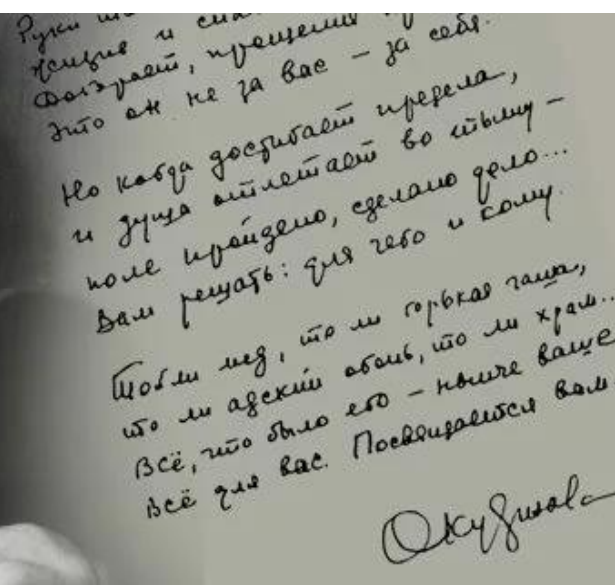 Руки
и
прощения
это он не за вас — за себя.
Но когда достигает предела,
и душа отлетает во тьму —
поле пройдено, сделано дело...
Вам решать: для чего и кому.
То ли мед, то ли горькая чаша,
то ли адский огонь, то ли храм...
Всё, что было его — нынче ваше
Всё для вас. Посвящается вам
Окуджава